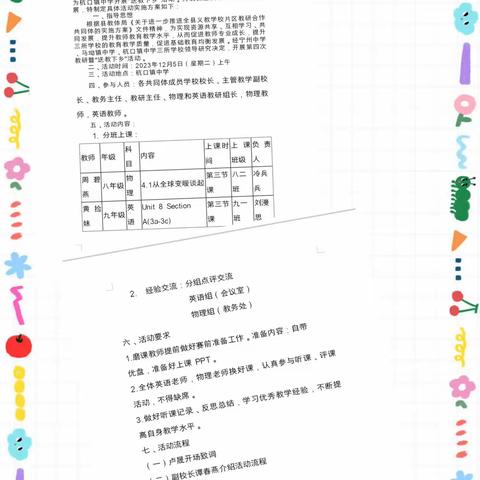 为杭口镇中学开展"送教下乡"活动。
展，特制定具体活动实施方案如下：
一、指导思想
根据县教体局《关于进一步推进全县义教学校片区教研合作
共同体的实施方案》文件精神，为实现资源共享，互相学习，共
同发展，提升教师教育教学水平，从而促进教师专业成长，提升
三所学校的教育教学质量，促进基础教育均衡发展。经宁州中学
、马坳镇中学、杭口镇中学三所学校领导研究决定，开展第四次
教研暨"送教下乡"活动。
二、活动时间：2023年12月5日（星期二）上午
三、活动地点：杭口镇中学
四、参与人员：各共同体成员学校校长、主管教学副校
长、教务主任、教研主任、物理和英语教研组长，物理教
师，英语教师。
五、活动内容：
1. 分班上课：
教师 年级 科目 内容 上课时间 上课班级 负责人
周碧燕 八年级 物理 4.1从全球变暖谈起 第三节课 八二班 冷兵兵
黄捡妹 九年级 英语 Unit 8 Section A(3a-3c) 第三节课 九一班 刘漫思
2. 经验交流：分组点评交流
英语组（会议室）
物理组（教务处）
六、活动要求
1.磨课教师提前做好赛前准备工作。准备内容：自带
优盘，准备好上课 PPT。
2.全体英语老师，物理老师换好课，认真参与听课、评课
活动，不得缺席。
3.做好听课记录、反思总结，学习优秀教学经验，不断提
高自身教学水平。
七、活动流程
（一）卢晟开场致词
（二）副校长谭春燕介绍活动流程